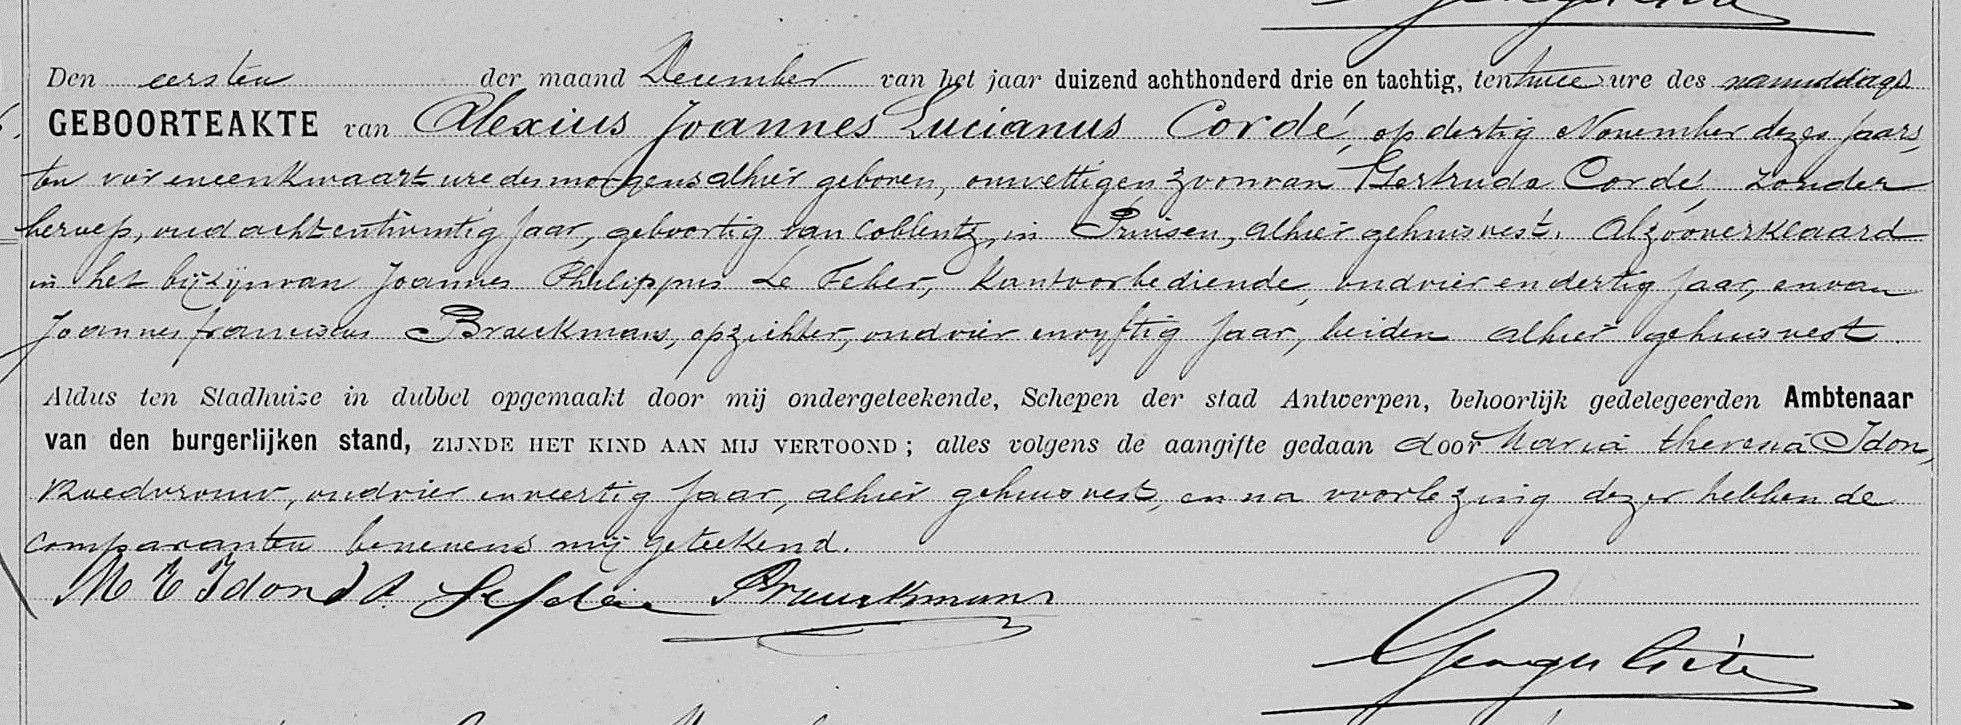 Den eersten der maand December van het jaar duizend achthonderd drie en tachtig, ten twee ure des namiddags
GEBOORTEAKTE van Alexius Joannes Lucianus Cordé, op dertig November dezes jaars,
ten vier en een kwaart ure des morgens alhier geboren, onwettigen zoon van Gertruda Cordé, zonder
beroep, oud acht en twintig jaar, geboortig van Coblentz, in Pruisen, alhier gehuisvest. Alzoo verklaard
in het bijzijn van Joannes Philippus Le Feber, kantoorbediende, oud vier en dertig jaar, en van
Joannes franciscus Braeckmans, opzichter, oud vier en vyftig jaar, beiden alhier gehuisvest.
Aldus ten Stadhuize in dubbel opgemaakt door mij ondergeteekende, Schepen der stad Antwerpen, behoorlijk gedelegeerden Ambtenaar
van den burgerlijken stand, ZIJNDE HET KIND AAN MIJ VERTOOND; alles volgens de aangifte gedaan door Maria theresia Idon,
Vroedvrouw, oud vier en veertig jaar, alhier gehuisvest, en na voorlezing dezer hebben de
comparanten benevens mij geteekend.
M T Idon Braeckmans